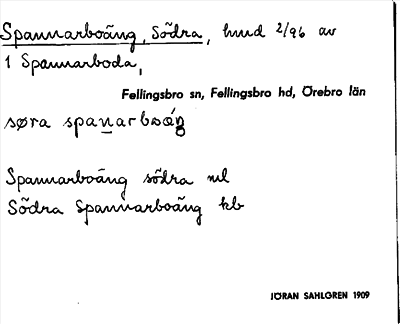 Spannarboäng, Södra, hmd 2/96 av
1 Spannarboda,
Fellingsbro sn, Fellingsbro hd, Örebro län
søra spanarboäŋ
Spannarboäng södra ml
Södra Spannarboäng kb
JÖRAN SAHLGREN 1909